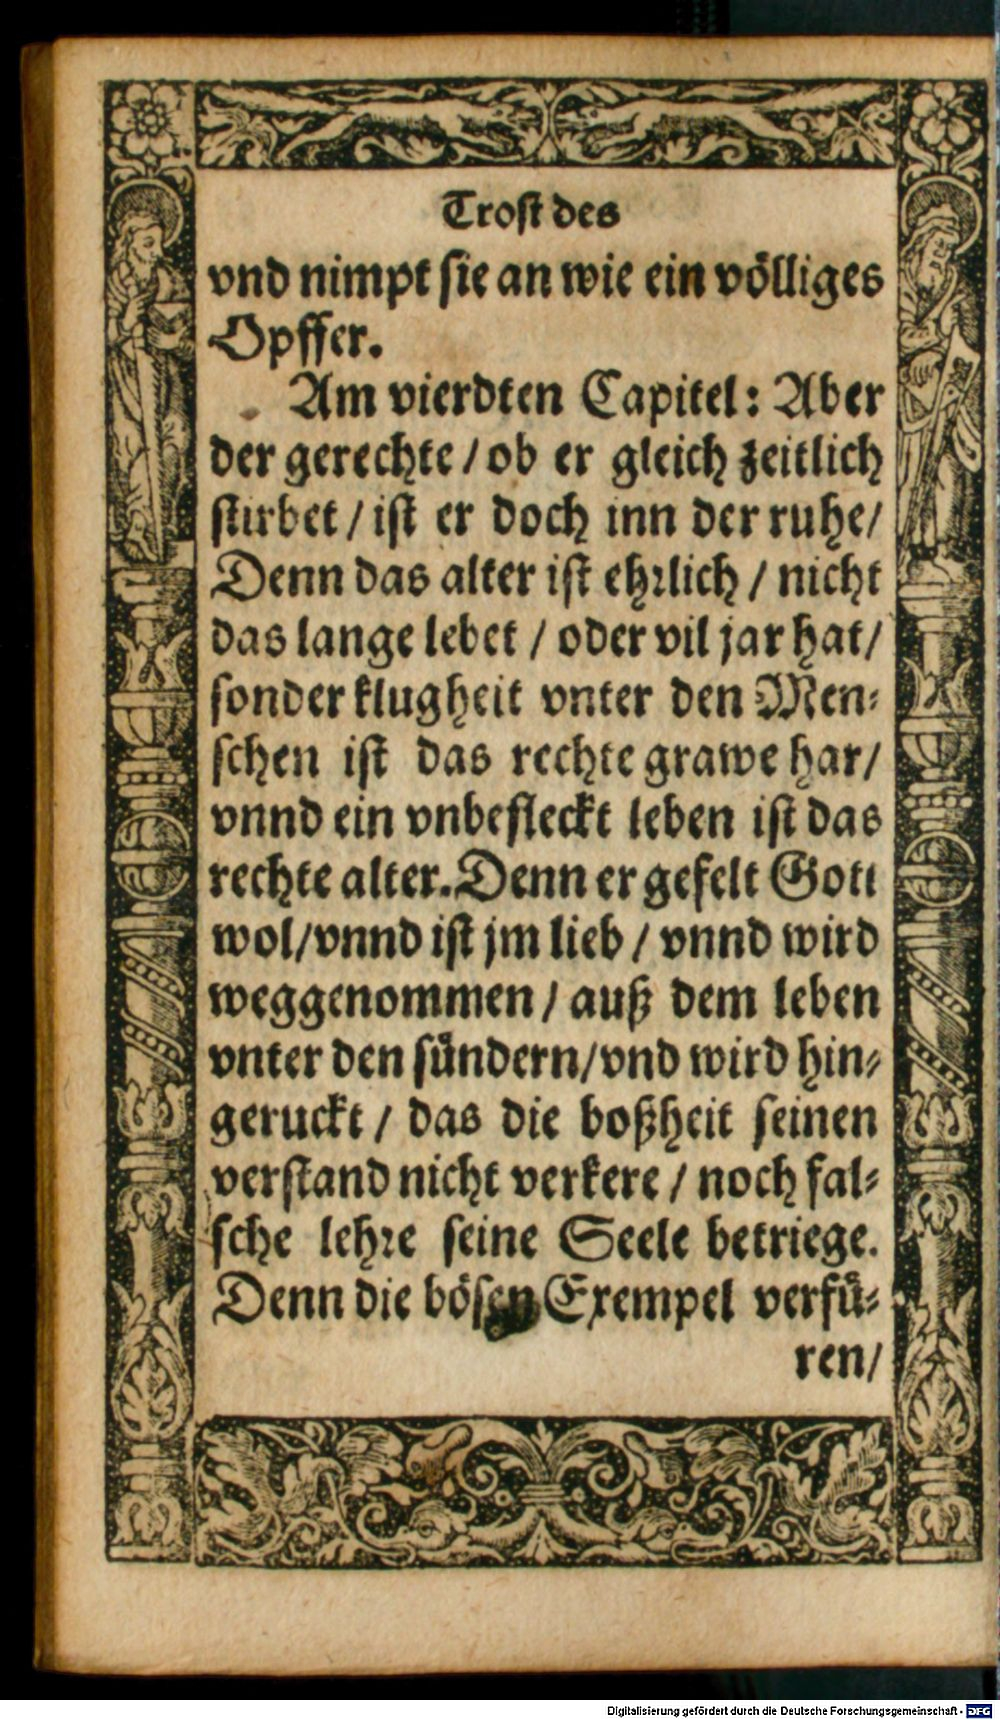 Trost des
vnd nimpt sie an wie ein völliges
Opffer.
Am vierdten Capitel: Aber
der gerechte / ob er gleich zeitlich
stirbet / ist er doch inn der ruhe /
Denn das alter ist ehrlich / nicht
das lange lebet / oder vil jar hat /
sonder klugheit vnter den Men⸗
schen ist das rechte grawe har /
vnnd ein vnbefleckt leben ist das
rechte alter. Denn er gefelt Gott
wol / vnnd ist jm lieb / vnnd wird
weggenommen / auß dem leben
vnter den sündern / vnd wird hin⸗
geruckt / das die boßheit seinen
verstand nicht verkere / noch fal⸗
sche lehre seine Seele betriege.
Denn die bösen Exempel verfü⸗
ren /
Digitalisierung gefördert durch die Deutsche Forschungsgemeinschaft - DFG